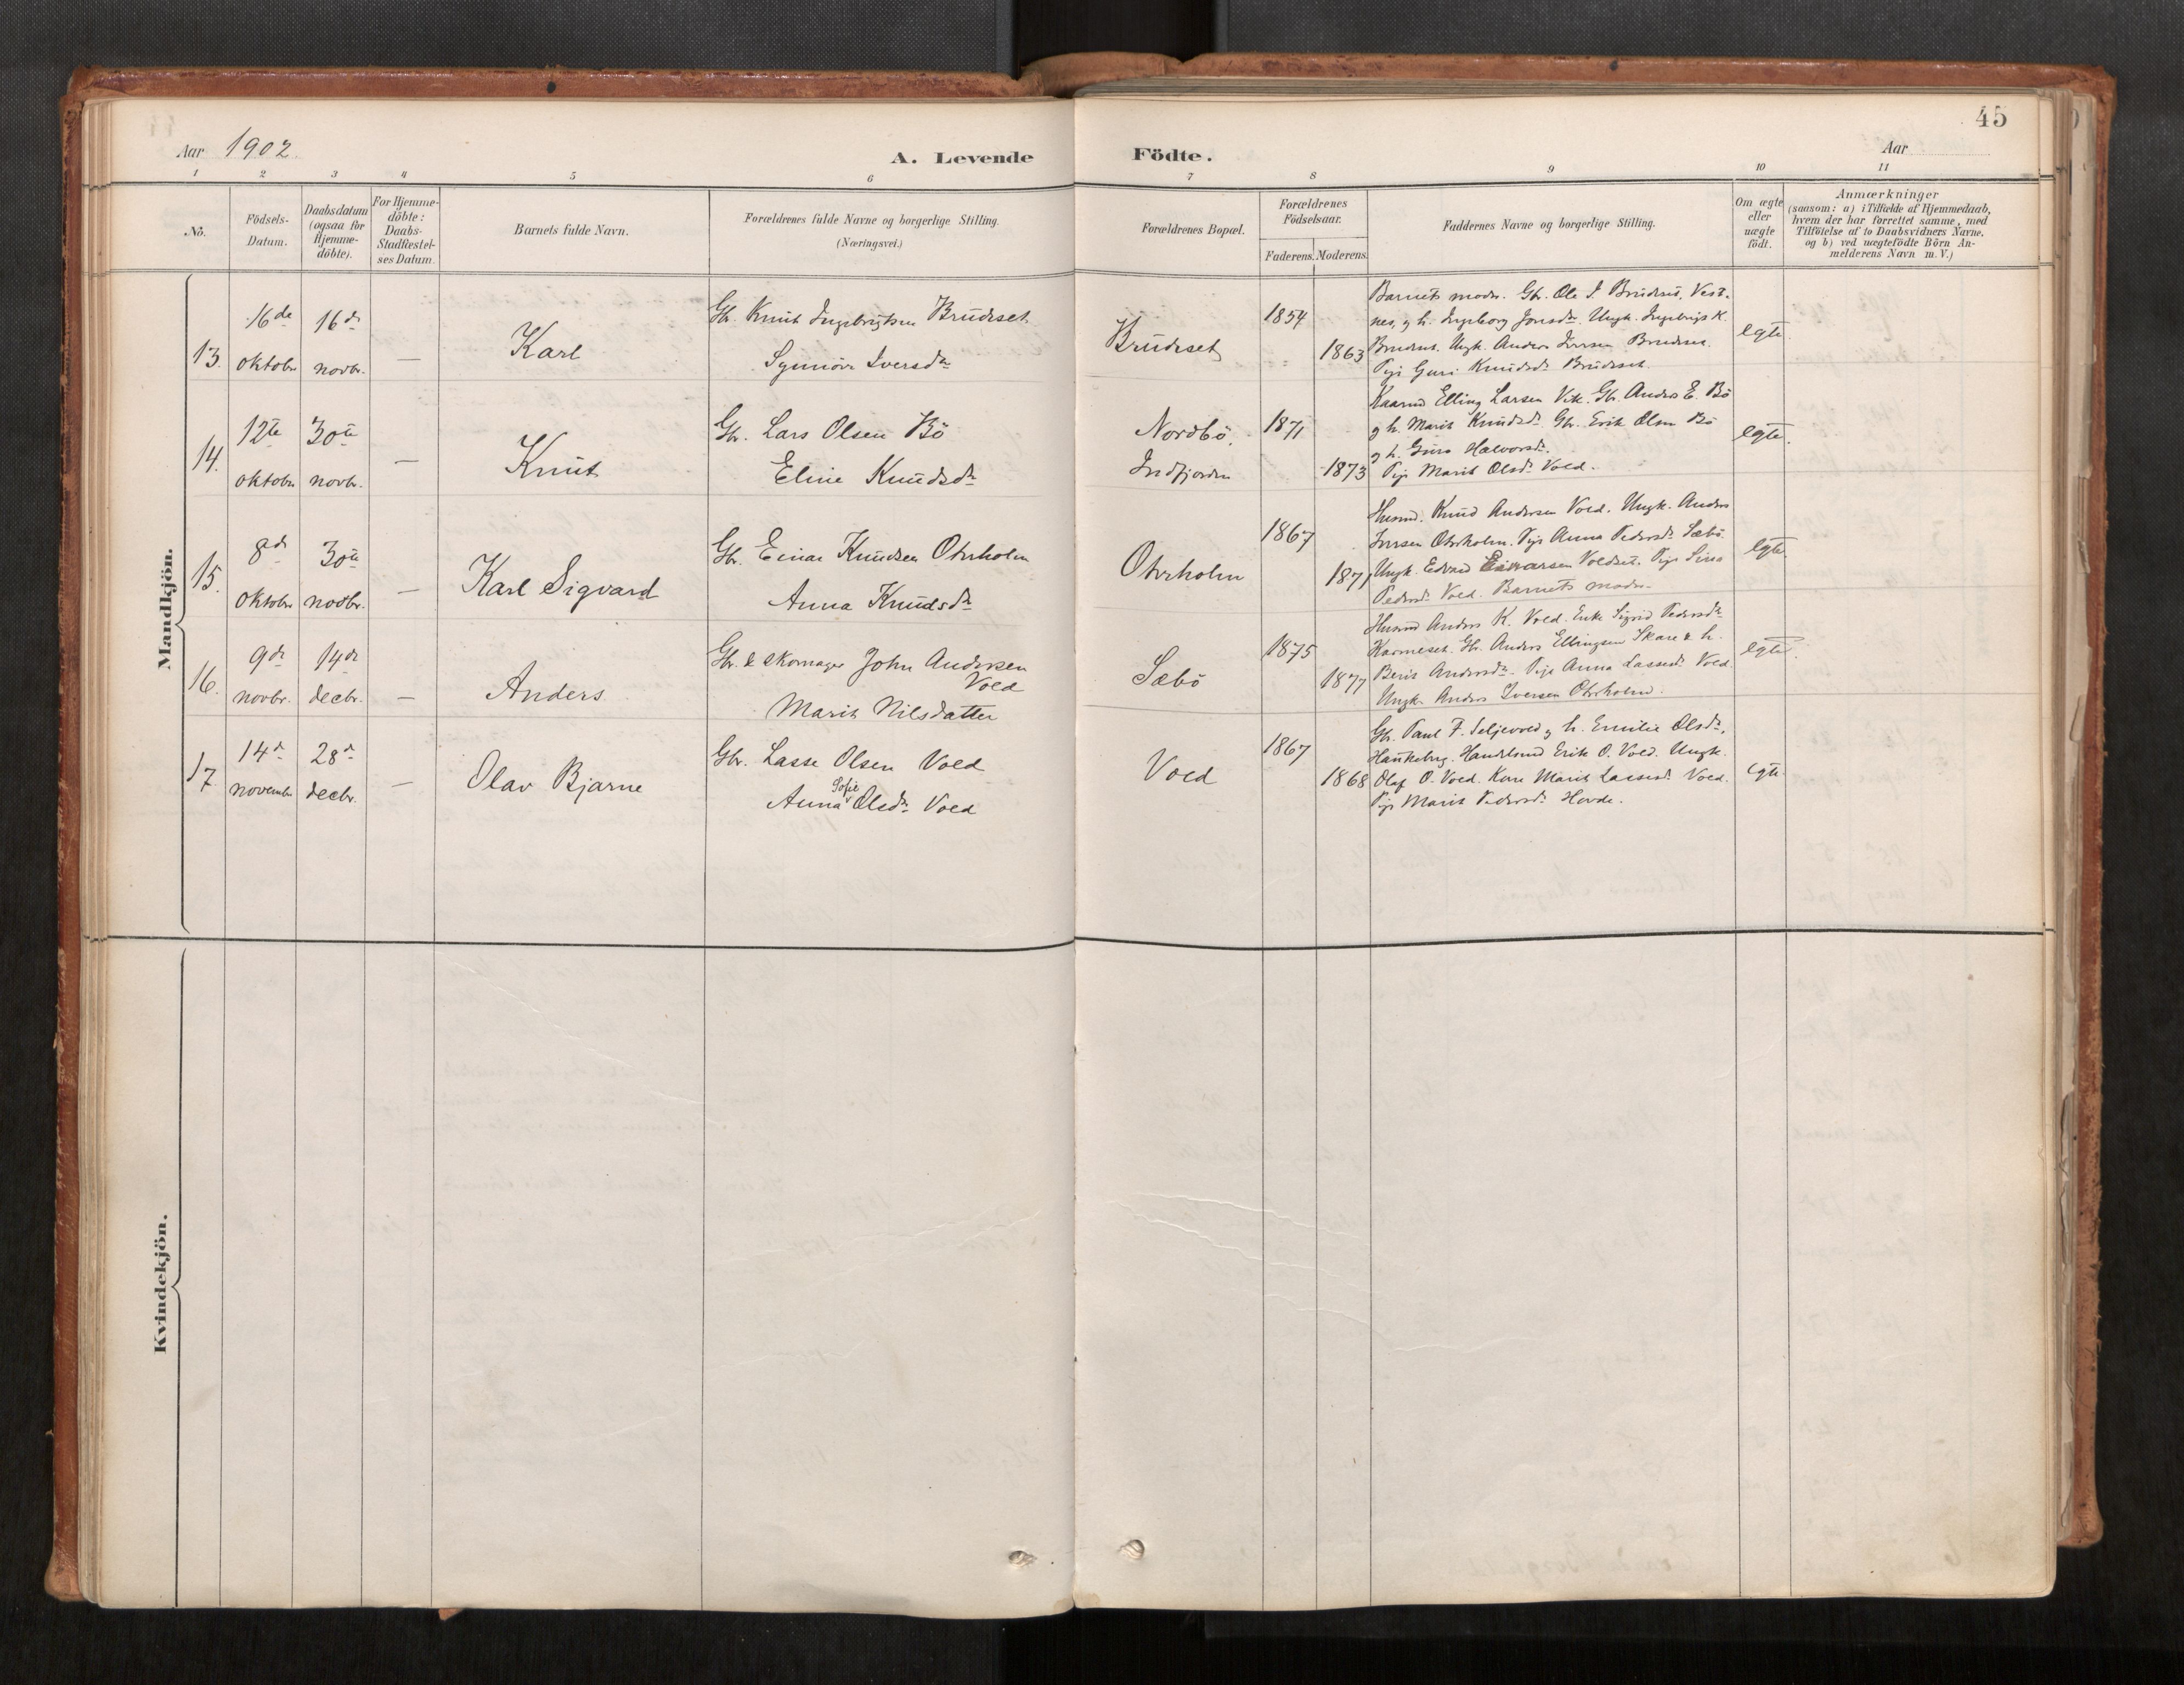 45
Aar 1902.
A. Levende Födte.
Aar
1 2 3 4 5 6 7 8 9 10 11
No.
Födsels-
Datum.
Daabsdatum
(ogsaa for
Hjemme-
döbte).
For Hjemme-
döbte:
Daabs-
Stadfæstel-
ses Datum.
Barnets fulde Navn.
Forældrenes fulde Navne og borgerlige Stilling.
(Næringsvei.)
Forældrenes Bopæl.
Forældrenes
Födselsaar.
Faderens. Moderens.
Faddernes Navne og borgerlige Stilling.
Om ægte
eller
uægte
födt.
Anmærkninger
(saasom: a) i Tilfælde af Hjemmedaab,
hvem der har forrettet samme, med
Tilföielse af to Daabsvidners Navne.
og b) ved uægtefödte Börn An-
melderens Navn m. V.)
Mandkjön.
13.
16de
oktobr
16de
novbr.
—
Karl
Gbr. Knut Ingebrigtsen Brudeset
Synnöve Iversdtr
Brudeset
1854
1863
Barnets moder. Gbr. Ole I. Brudeset, Vest-
nes, g h. Ingeborg Jonsdtr. Ungk. Ingebrigt K.
Brudeset. Ungk. Anders Iversen Brudeset.
Pige Guri Knudsdtr Brudeset.
egte.
14.
12te
oktobr
30te
novbr.
—
Knut
Gbr. Lars Olsen Bö
Eline Knudsdtr
Nordbö.
Indfjorden
1871
1873
Kaarmd Elling Larsen Vik. Gbr. Anders E. Bö
g h. Marit Knudsdtr. Gbr. Erik Olsen Bö
g h. Guro Halvorsdtr.
Pige Marit Olsdtr Vold.
egte.
15.
8de
oktobr
30te
novbr.
—
Karl Sigvard
Gbr. Einar Knudsen Otrholm
Anna Knudsdtr
Otrholm
1867
1871
Husmd. Knud Andersen Vold. Ungk. Anders
Iversen Otrholm. Pige Anna Pedersdtr Sæbö.
Ungk. Edvard Einarsen Voldset. Pige Sina
Pedersdtr Vold. Barnets moder.
egte
16.
9de
novbr.
14de
decbr.
—
Anders
Gbr. & skomager John Andersen
Vold
Marit Nilsdatter
Sæbö
1875
1877
Husmd Anders K. Vold. Enke Sigrid Pedersdtr
Kormeset. Gbr. Anders Ellingsen Skare & h.
Berit Andersdtr. Pige Anna Lassedtr Vold
Ungk. Anders Iversen Otrholm.
egte.
17.
14de
novembr
28de
decbr.
—
Olav Bjarne
Gbr. Lasse Olsen Vold
Anna Sofie Olsdtr Vold
Vold
1867
1868
Gbr. Paul F. Seljevold g h. Emilie Olsdtr,
Haukeberg. Handelsmd Erik O. Vold. Ungk.
Olaf O. Vold. Kone Marit Lassesdtr Vold.
Pige Marit Pedersdtr Hovde.
egte.
Kvindekjön.